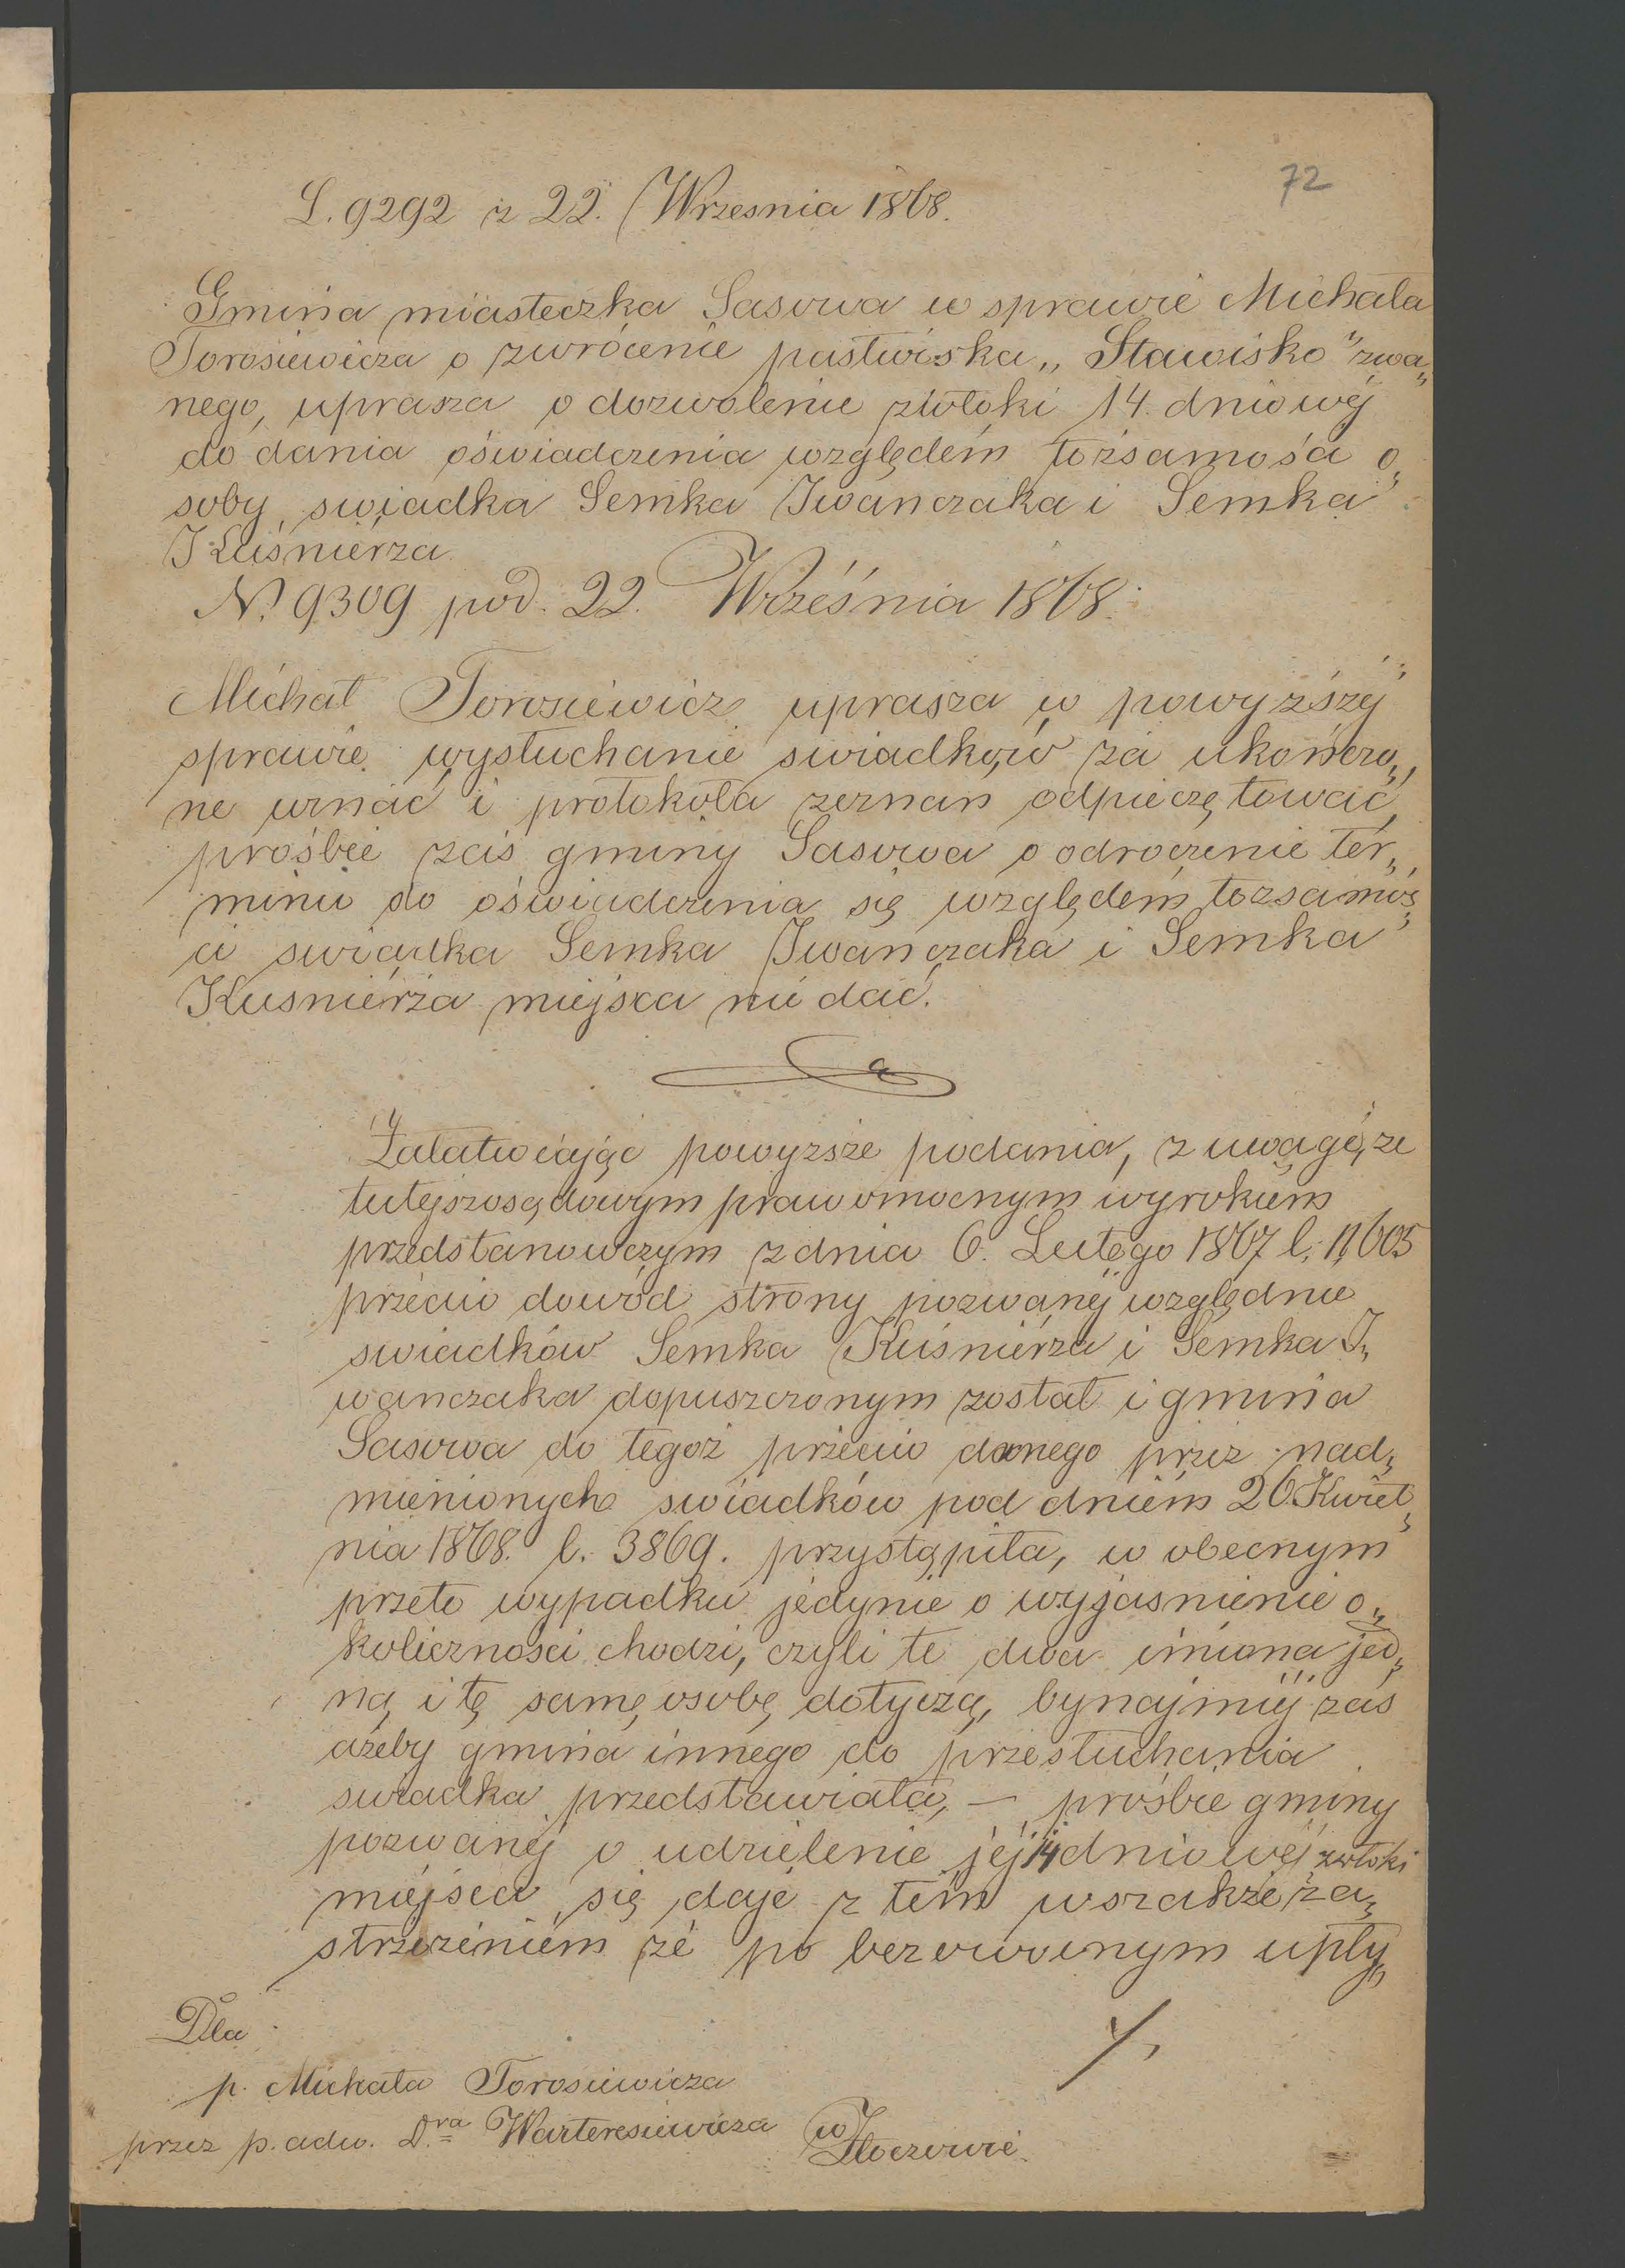 72
L. 9292 z 22. Wrzesnia 1868.
Gmina miasteczka Sasowa w sprawie Michała
Torosiewicza o zwrócenie pastwiska „Stawisko" zwa„
nego, uprasza o dozwolenie zwłoki 14. dniowéj
do dania oświadczenia względem tożsamośći o„
soby swiadka Semka Iwanczaka i Semka
Kuśniérza
N. 9309 pod. 22. Września 1868.
Michał Torosiewicz uprasza w powyższéj
sprawie wysłuchanie swiadków za ukończo„
ne uznać i protokoła zeznan odpieczętować,
prośbie zaś gminy Sasowa o odroczenie ter„
minu do oświadczenia się względem tozsamoś„
ci swiadka Semka Iwanczaka i Semka
Kusniérza miejsca nie dać.
Załatwiając powyzsze podania, z uwagę, ze
tutejszosądowym prawomocnym wyrokiem
przedstanowczym z dnia 6. Lutego 1867 l. 11605
przeciw dowód strony pozwanéj względnie
swiadków Semka Kuśniérza i Semka I„
wanczaka dopuszczonym został i gmina
Sasowa do tegoż przeciw danego przez nad„
mienionych swiadków pod dniem 26 Kwiet„
nia 1868. l. 3869. przystąpiła, w obecnym
przeto wypadku jedynie o wyjasnienie o„
kolicznosci chodzi, czyli te dwa imiona jed„
ną i tę samę osobę dotyczą, bynajmiéj zaś
ażeby gmina innego do przesłuchania
swiadka przedstawiała, — prośbie gminy
pozwanéj o udzielenie jéj 14 dniowéj zwłoki
miejsca się daje z tem wszakże za„
strzeżeniem, że po bezowocnym upły„
./.
Dla
p. Michała Torosiewicza
przez p. adw. D.ra Warteresiewicza w
Złoczowie.